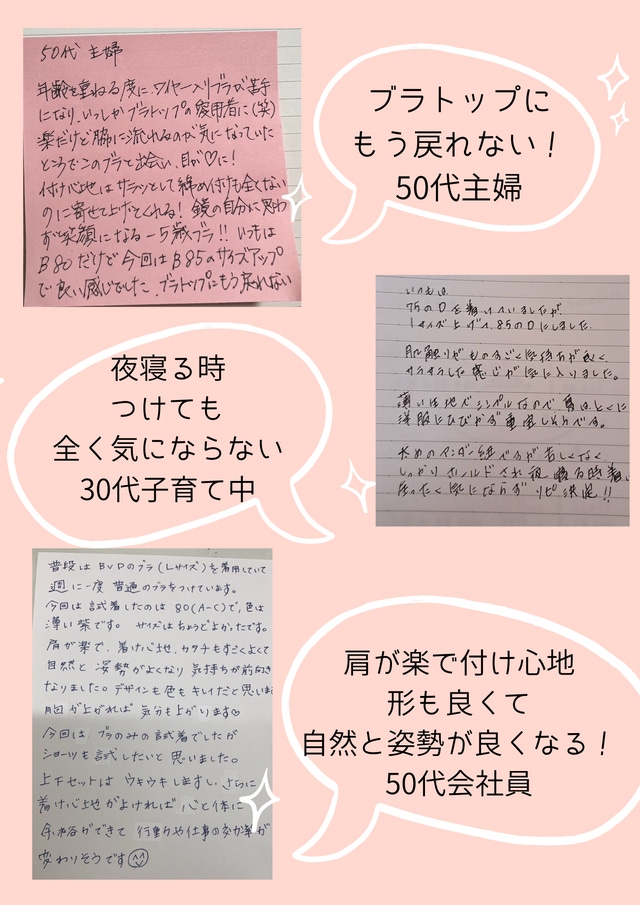 50代 主婦
年齢を重ねる度に、ワイヤー入りブラが苦手
になり、いつしかブラトップの愛用者に(笑)
楽だけど脇に流れるのが気になっていた
ところでこのブラと出会い、目が♡に!
付け心地はサラッとして締め付けも全くない
のに寄せて上げてくれる! 鏡の自分に思わ
ず笑顔になる -5歳ブラ!! いつもは
B80だけど今回はB85のサイズアップ
で良い感じでした。ブラトップにもう戻れない
ブラトップに
もう戻れない!
50代主婦
いつもは
75のDを着けていましたが、
1サイズ上げて、85のDにしました。
肌触りがものすごく気持ちが良く、
サラサラした感じが気に入りました。
薄い生地でシンプルなので夏はとくに
洋服にひびかず重宝しそうです。
太めのアンダー紐ですが苦しくなく、
しっかりホールドされ夜寝る時着
まったく気にならず リピ決定!!
夜寝る時
つけても
全く気にならない
30代子育て中
普段はBVDのブラ(Lサイズ)を着用していて
週に一度 普通のブラをつけています。
今回は試着したのは80(A-C)で、色は
薄い紫です。サイズはちょうどよかったです。
肩が楽で、着け心地、カタチもすごくよくて
自然と姿勢がよくなり 気持ちが前向き
なりました。デザインも色もキレイだと思いま
胸が上がれば 気分も上がります♡
今回は、ブラのみの試着でしたが
ショーツも試したいと思いました。
上下セットは ウキウキしますし、さらに
着け心地がよければ 心と体に
余裕ができて 行動や仕事の効率が
変わりそうです
肩が楽で付け心地
形も良くて
自然と姿勢が良くなる!
50代会社員